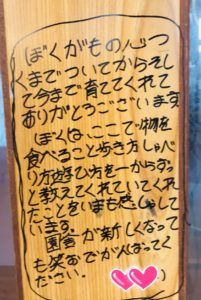 ぼくがもの心つ
くまでついてからそし
て今まで育ててくれて
ありがとうございます
ぼくは、ここで物を
食べること歩き方しゃべ
り方遊び方を一からずっ
と教えてくれていてくれ
たことをいまも感しゃして
います。
園舎が新しくなって
も笑おでがんばってく
ださい。